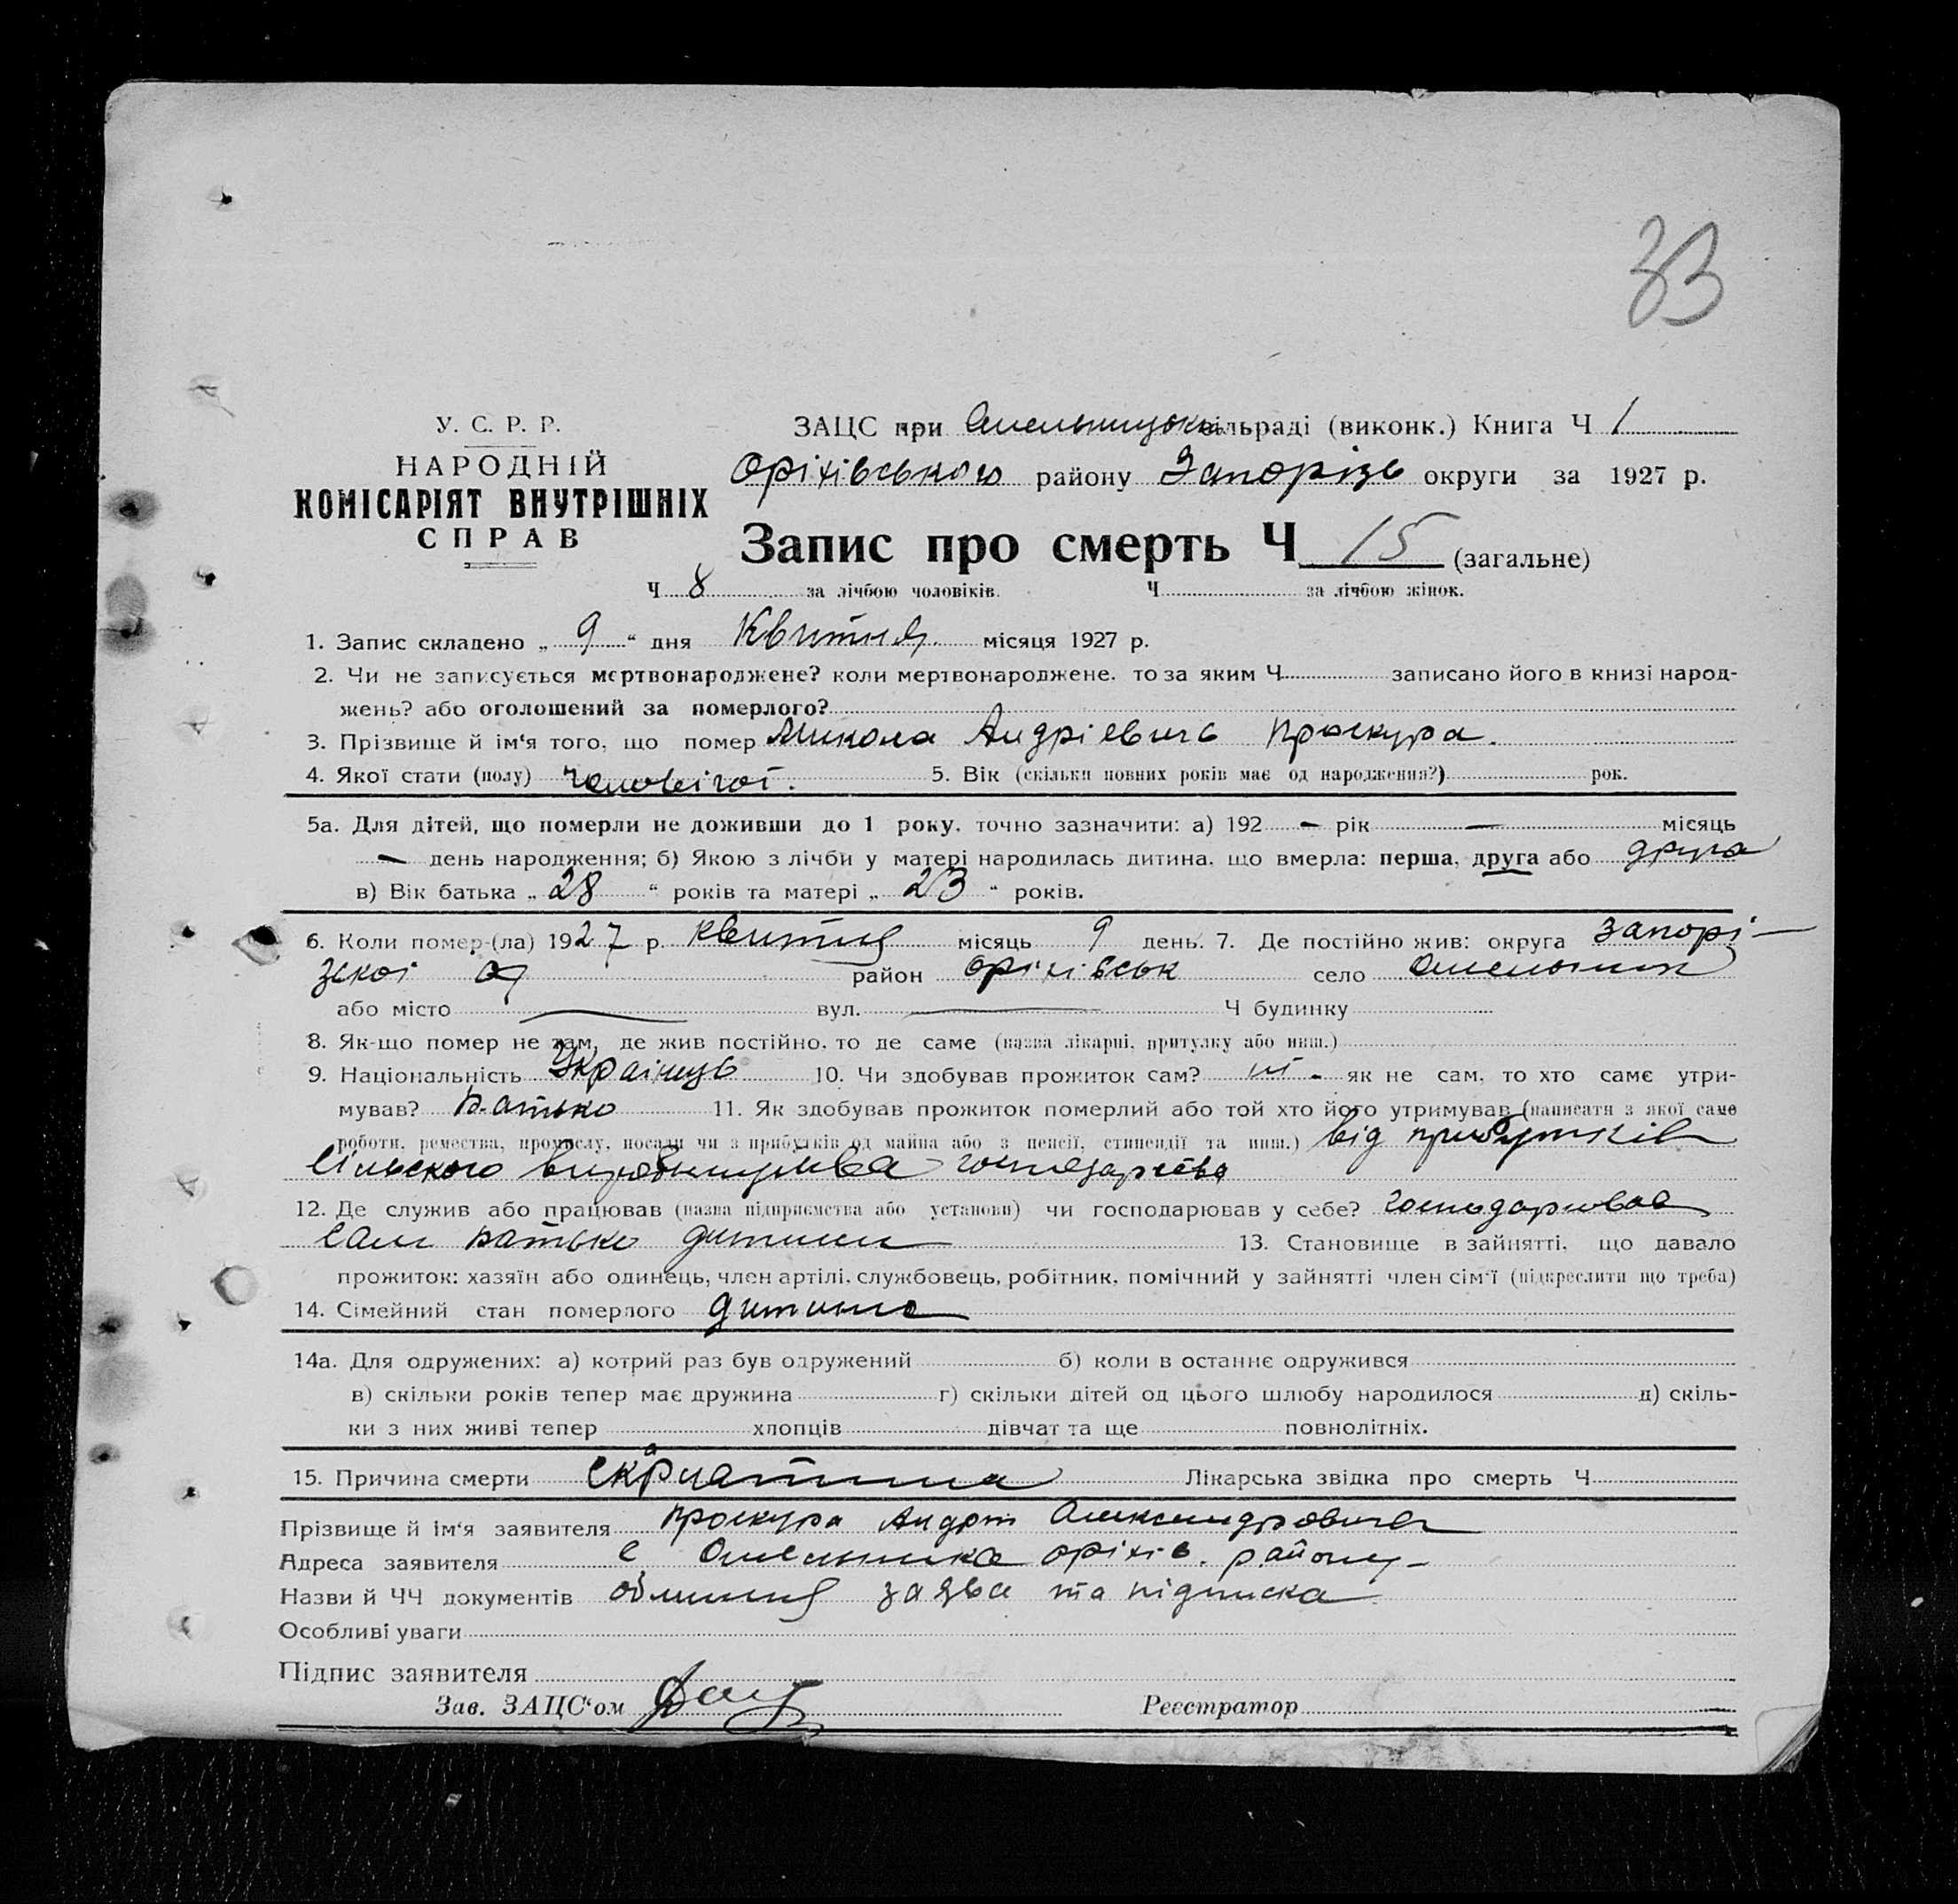 33
У. С. Р. Р.
НАРОДНІЙ
КОМІСАРІЯТ ВНУТРІШНІХ
СПРАВ
ЗАЦС при Омельницьк сільраді (виконк.) Книга Ч 1
Оріхівського району Запорізь округи за 1927 р.
Запис про смерть Ч 15 (загальне)
Ч 8 за лічбою чоловіків. Ч за лічбою жінок.
1. Запис складено „ 9 “ дня Квитня місяця 1927 р.
2. Чи не записується мертвонароджене? коли мертвонароджене. то за яким Ч записано його в книзі народ-
жень? або оголошений за померлого?
3. Прізвище й ім‘я того, що помер Микола Андріевичь Проскура.
4. Якої стати (полу) чоловічої. 5. Вік (скільки повних років має од народження?) рок.
5а. Для дітей, що померли не доживши до 1 року, точно зазначити: а) 192 — рік — місяць
— день народження; б) Якою з лічби у матері народилась дитина, що вмерла: перша, друга або друга
в) Вік батька „ 28 “ років та матері „ 23 “ років.
6. Коли помер-(ла) 1927 р. квитня місяць 9 день. 7. Де постійно жив: округа Запорі-
зскоі район Оріхівськ село Омельник
або місто — вул. — Ч будинку
8. Як-що помер не там, де жив постійно, то де саме (назва лікарні, притулку або инш.)
9. Національність Украінець 10. Чи здобував прожиток сам? ні. як не сам, то хто саме утри-
мував? батько 11. Як здобував прожиток померлий або той хто його утримував (написати з якої саме
роботи, ремества, промислу, посади чи з прибутків од майна або з пенсії, стипендії та инш.) від прибутків
сільского господарства
12. Де служив або працював (назва підприємства або установи) чи господарював у себе? господарював
сам батько дитини 13. Становище в зайнятті, що давало
прожиток: хазяїн або одинець, член артілі, службовець, робітник, помічний у зайнятті член сім‘ї (підкреслити що треба)
14. Сімейний стан померлого дитина
14а. Для одружених: а) котрий раз був одружений б) коли в останнє одружився
в) скільки років тепер має дружина г) скільки дітей од цього шлюбу народилося д) скіль-
ки з них живі тепер хлопців дівчат та ще повнолітніх.
15. Причина смерти Скарлатина Лікарська звідка про смерть Ч
Прізвище й ім‘я заявителя Проскура Андрій Олександрович
Адреса заявителя с Омельника оріхів. району
Назви й ЧЧ документів заява та підписка
Особливі уваги
Підпис заявителя
Зав. ЗАЦС‘ом Реєстратор